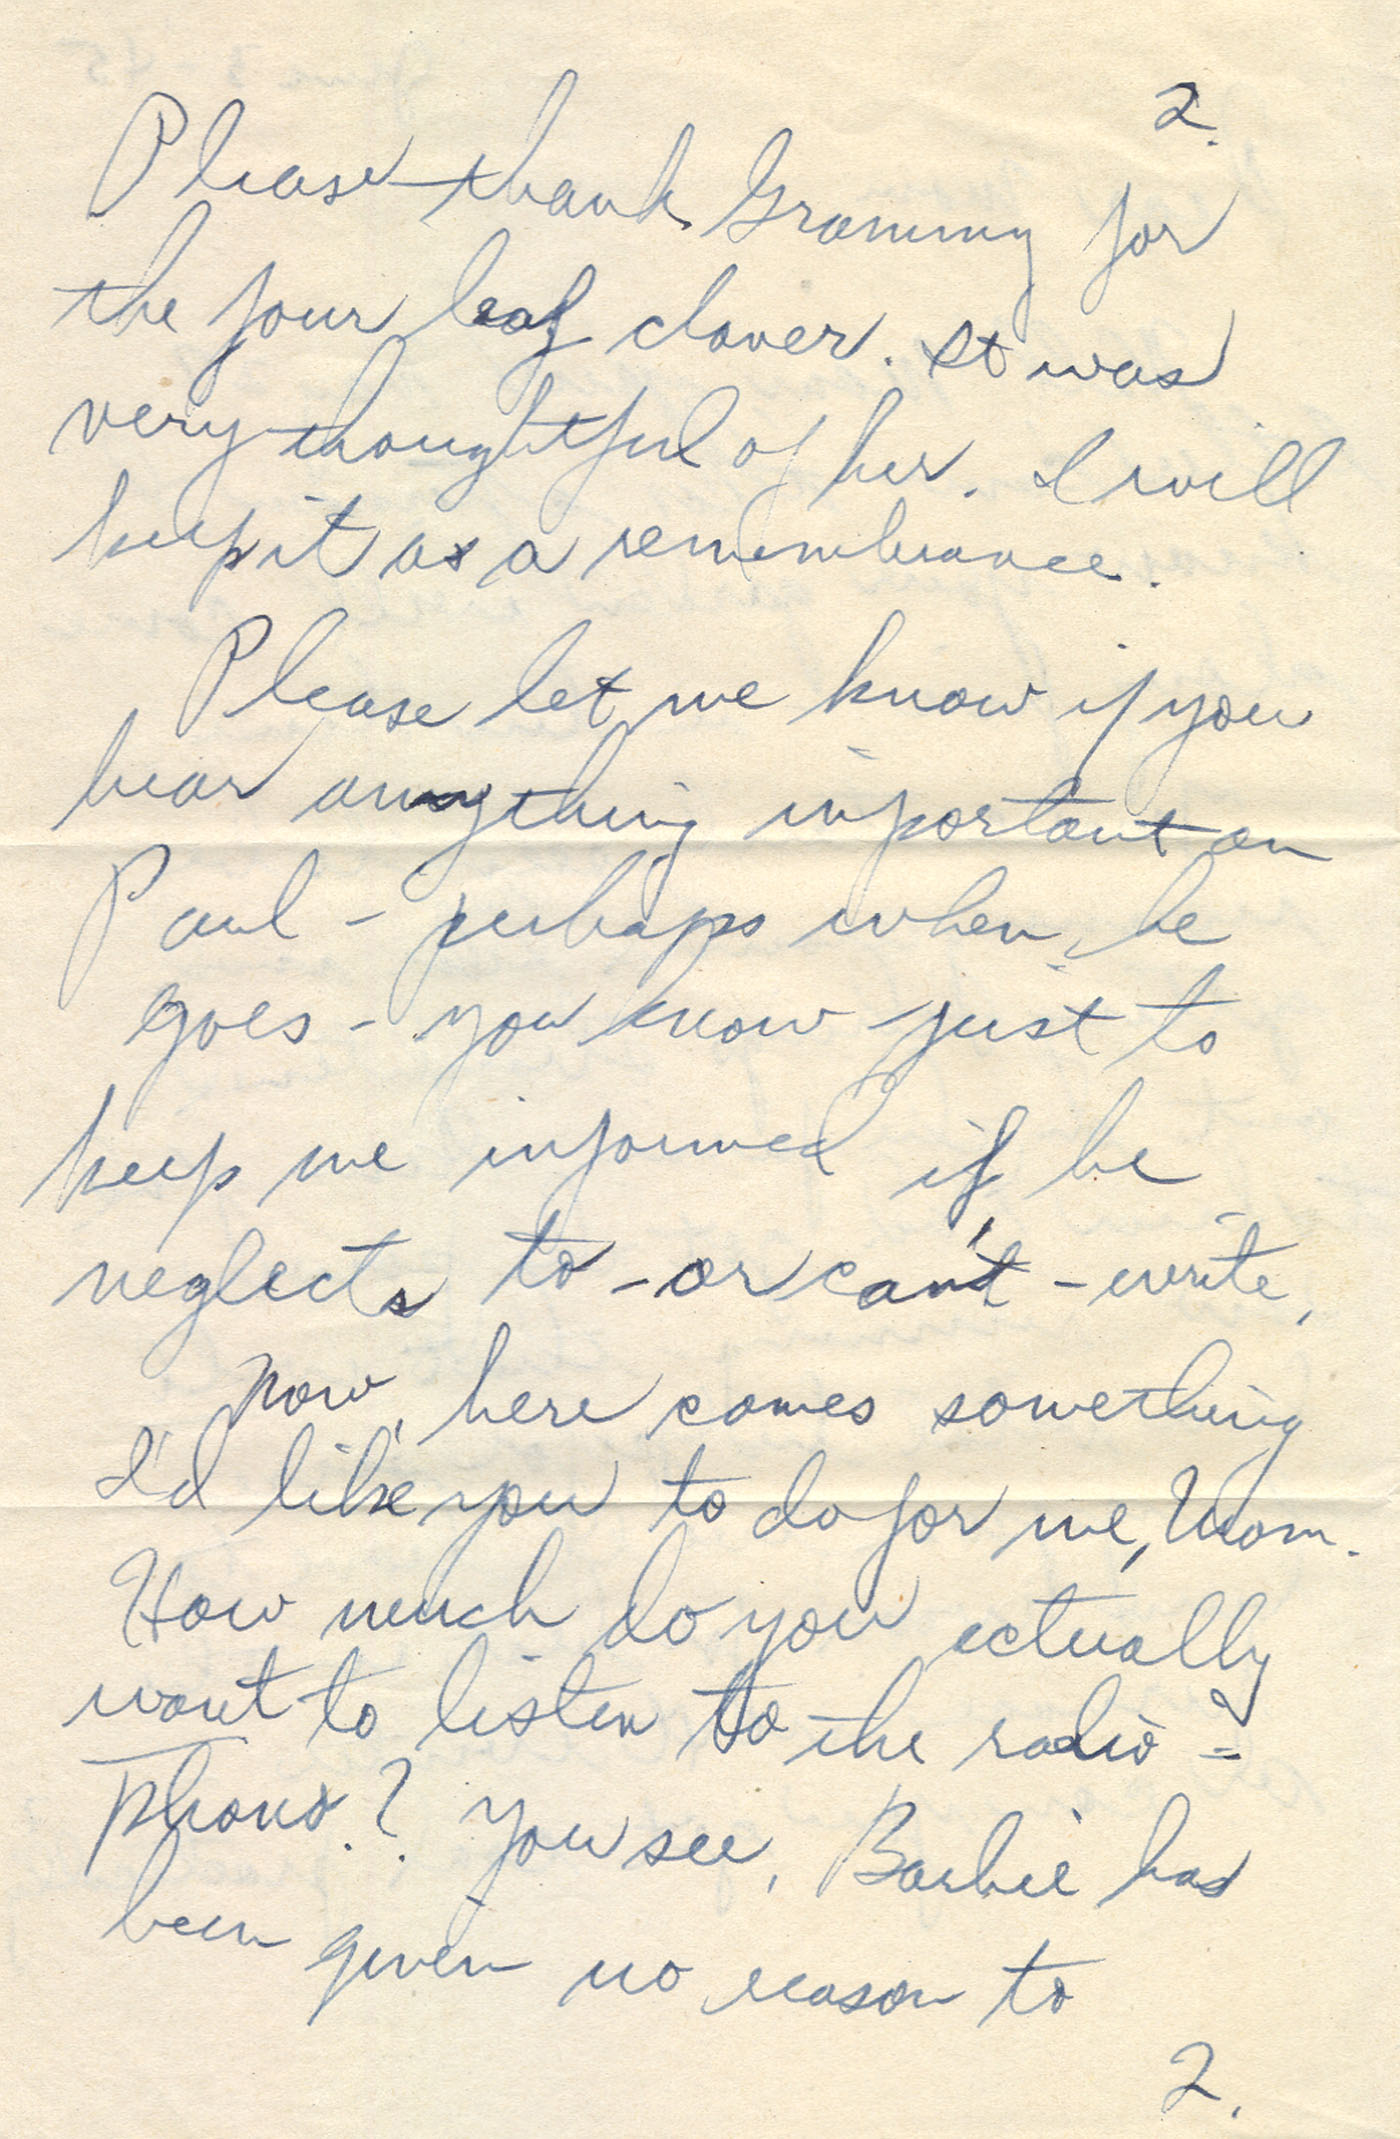 2.
Please thank Grammy for
the four leaf clover. It was
very thoughtful of her. I will
keep it as a remembrance.
Please let me know if you
hear anything important on
Paul - perhaps when he
goes - you know just to
keep me informed if he
neglects to - or can't - write,
Now, here comes something
I'd like you to do for me, Mom.
How much do you actually
want to listen to the radio =
Phono.? You see, Barbie has
been given no reason to
2.